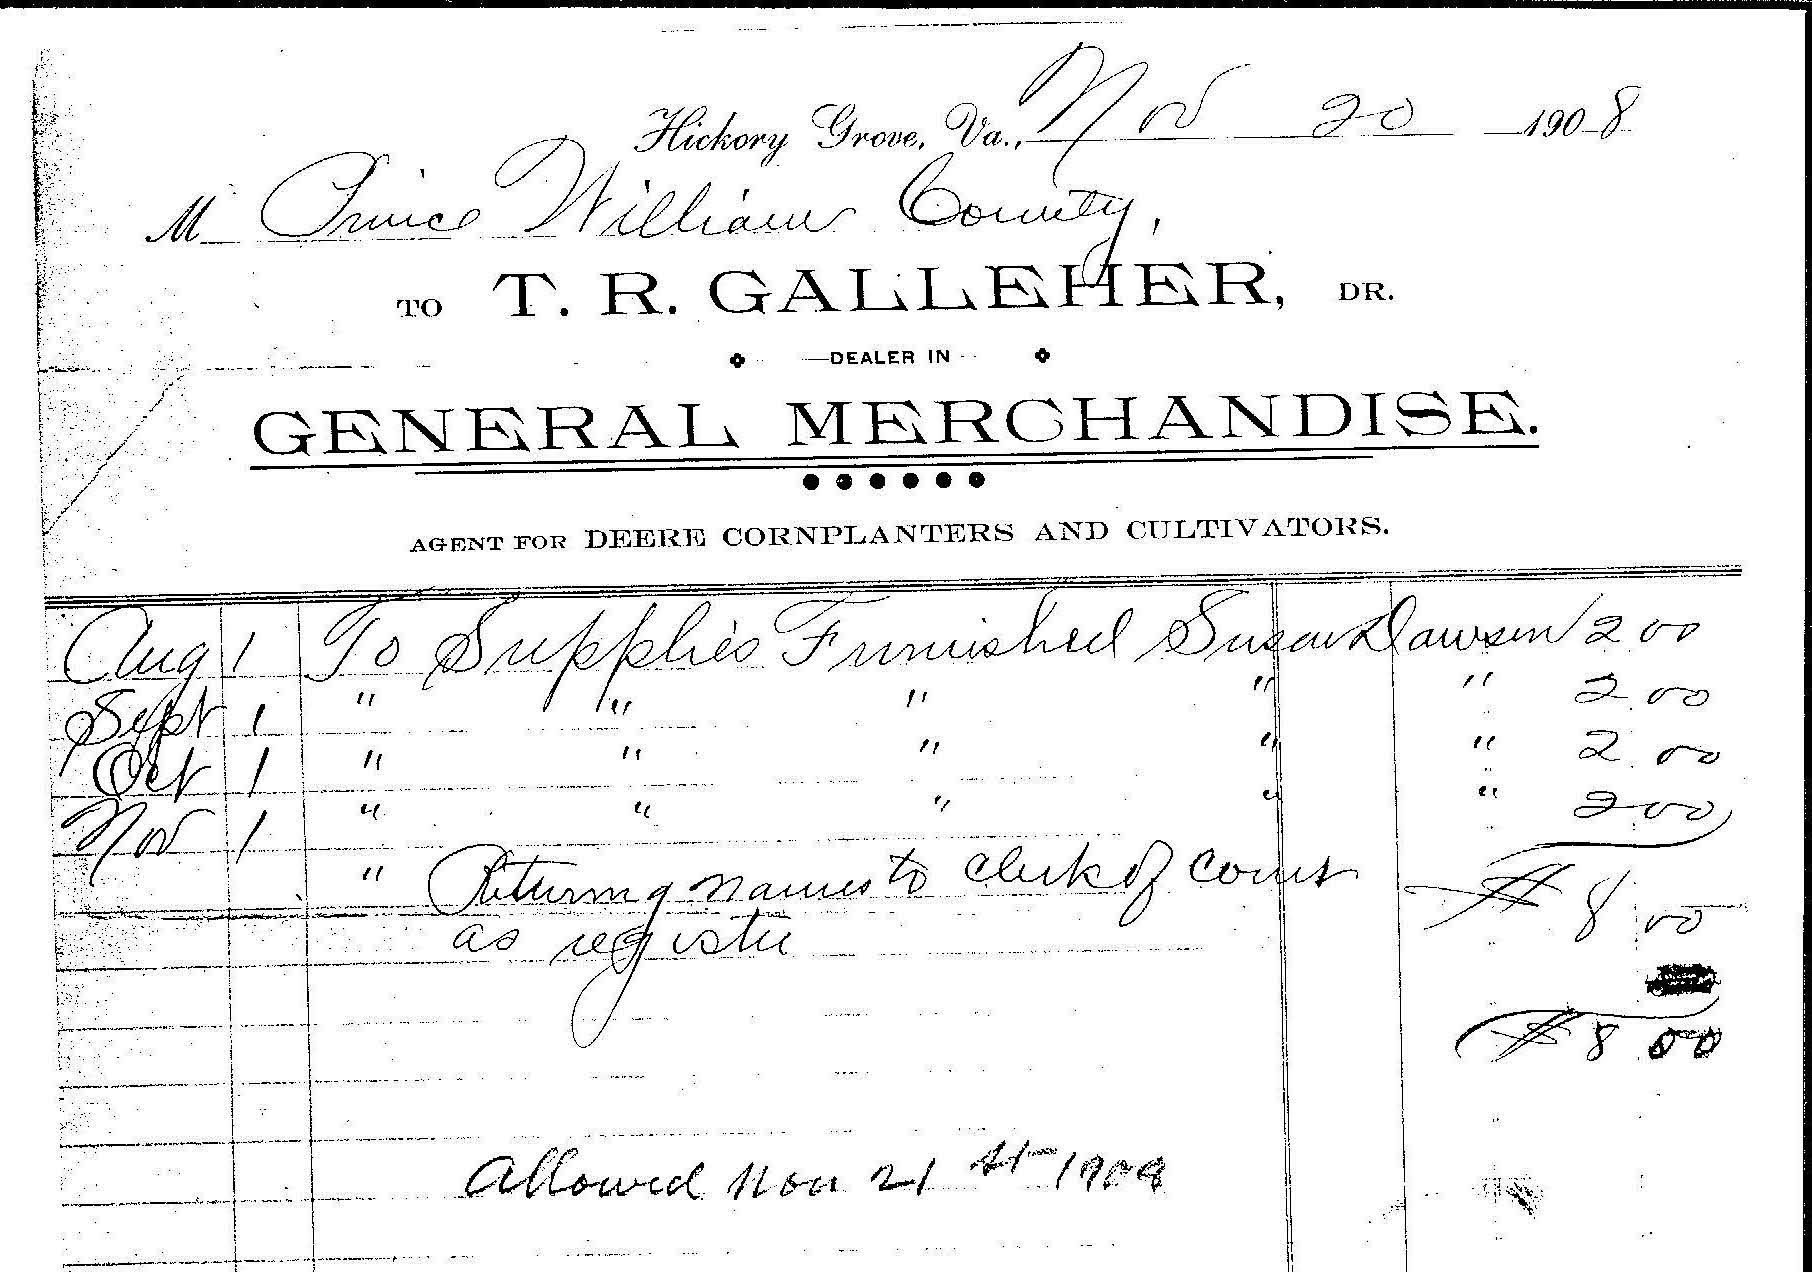 Hickory Grove, Va., Nov 20 1908
M Prince William County,
TO T. R. GALLEHER, DR.
DEALER IN
GENERAL MERCHANDISE.
AGENT FOR DEERE CORNPLANTERS AND CULTIVATORS.
Aug 1 To Supplies Furnished Susan Dawson 2 00
Sept 1 " " " " " 2 00
Oct 1 " " " " " 2 00
Nov 1 " " " " " 2 00
" Returning names to clerk of court $ 8 00
as register
$ 8 00
Allowed Nov 21st 1908